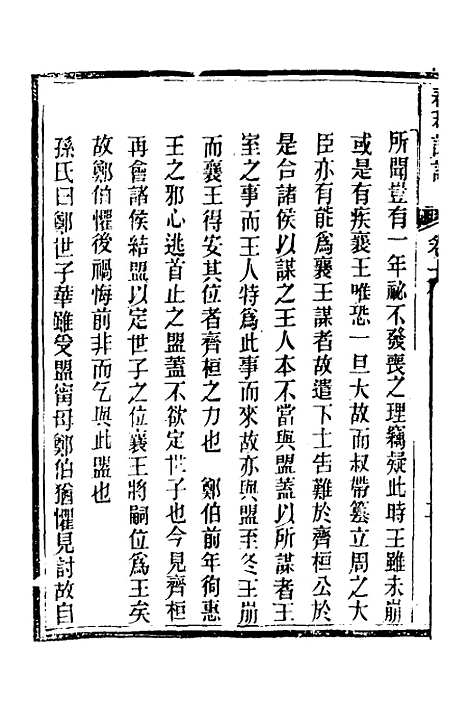 所聞豈有一年祕不發喪之理竊疑此時王雖未崩
或是有疾襄王唯恐一旦大故而叔帶簒立周之大
臣亦有能爲襄王謀者故遣下士告難於齊桓公於
是合諸侯以謀之王人本不當與盟蓋以所謀者王
室之事而王人特爲此事而來故亦與盟至冬王崩
而襄王得安其位者齊桓之力也　鄭伯前年徇惠
王之邪心逃首止之盟蓋不欲定世子也今見齊桓
再會諸侯結盟以定世子之位襄王將嗣位爲王矣
故鄭伯懼後禍悔前非而乞與此盟也
孫氏曰鄭世子華雖受盟甯母鄭伯猶懼見討故自